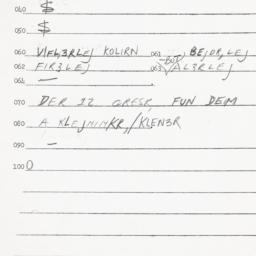 040 $
050 $
060 VIFL3RLEJ KOLIRN 061 BEJDR,LEJ
062 FIR3LEJ 063 BUT AL3RLEJ
061 —
070 DER 12 GRESR, FUN DEM
080 A KLEJNINKR,/KLEN3R
090 —
100 0